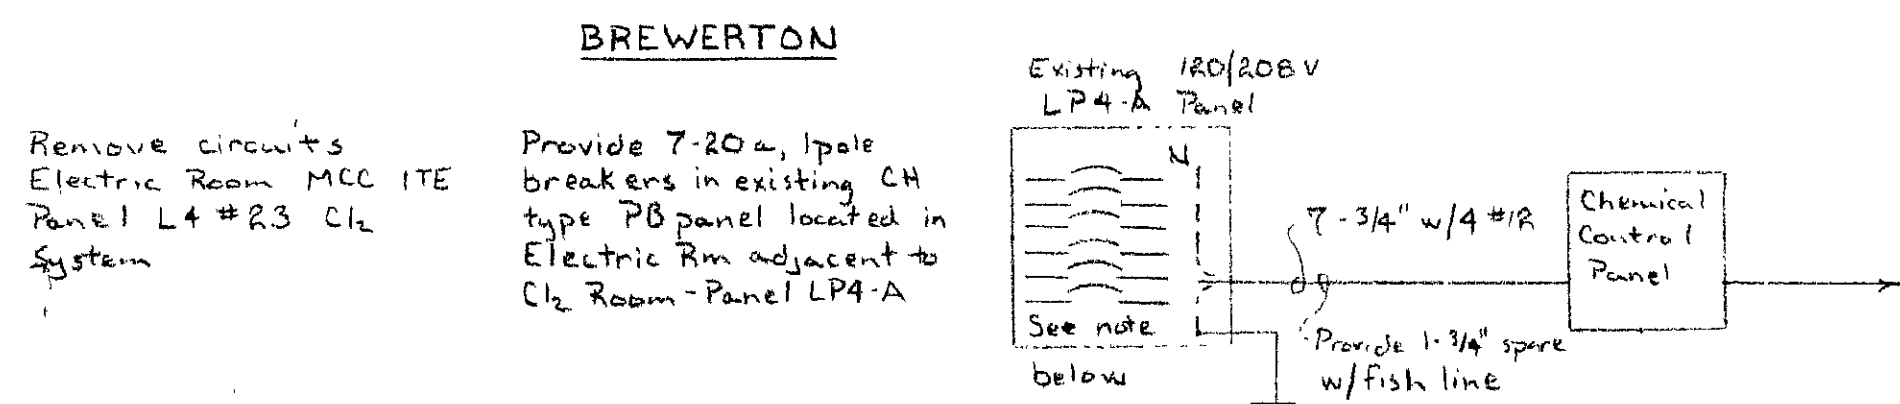 BREWERTON
Remove circuits
Electric Room MCC ITE
Panel L4 #23 Cl₂
System
Provide 7-20a, 1pole
breakers in existing CH
type PB panel located in
Electric Rm adjacent to
Cl₂ Room-Panel LP4-A
Existing 120/208V
LP4-A Panel
N
See note
below
7-3/4" w/4 #12
Provide 1-3/4" spare
w/fish line
Chemical
Control
Panel